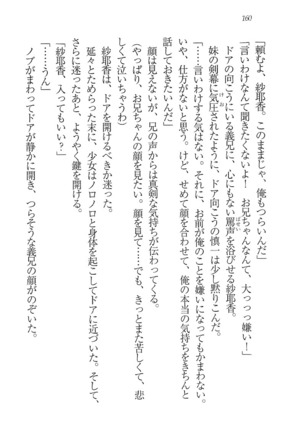 160
「頼むよ、紗耶香。このままじゃ、俺もつらいんだ」
「言いわけなんて聞きたくないよ! お兄ちゃんなんて、大っっっ嫌い!」
ドアの向こうにいる義兄に、心にもない罵声を浴びせる紗耶香。
妹の剣幕に気圧されたように、ドア向こうの慎一は少し黙りこんだ。
「……言いわけする気はない。それに、お前が俺のことを嫌いになってもかまわな
いや、仕方がないと思う。けど、せめて顔を合わせて、俺の本当の気持ちをきちんと
話しておきたいんだ」
顔は見えないが、兄の声からは真剣な気持ちが伝わってくる。
(やっぱり、お兄ちゃんの顔を見たい。顔を見て……でも、きっとまた苦しくて、悲
しくて泣いちゃうわ)
紗耶香は、ドアを開けるべきか迷った。
延々とためらった末に、少女はノロノロと身体を起こしてドアに近づいた。そして、
さらに迷ったあと、ようやく鍵を開ける。
「紗耶香、入ってもいい?」
「……うん」
ノブがまわってドアが静かに開き、つらそうな義兄の顔がのぞいた。